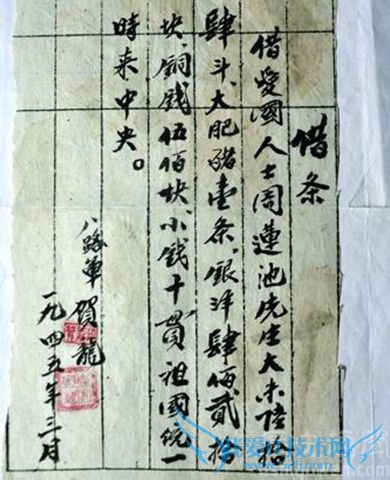 借条
借愛國人士周蓮池先生大米陸拾
肆斗、大肥豬壹条、銀洋肆佰貳拾
块、铜钱伍佰块、小钱十贯、祖國统一
時来中央。
八路軍 賀龍
一九四五年三月